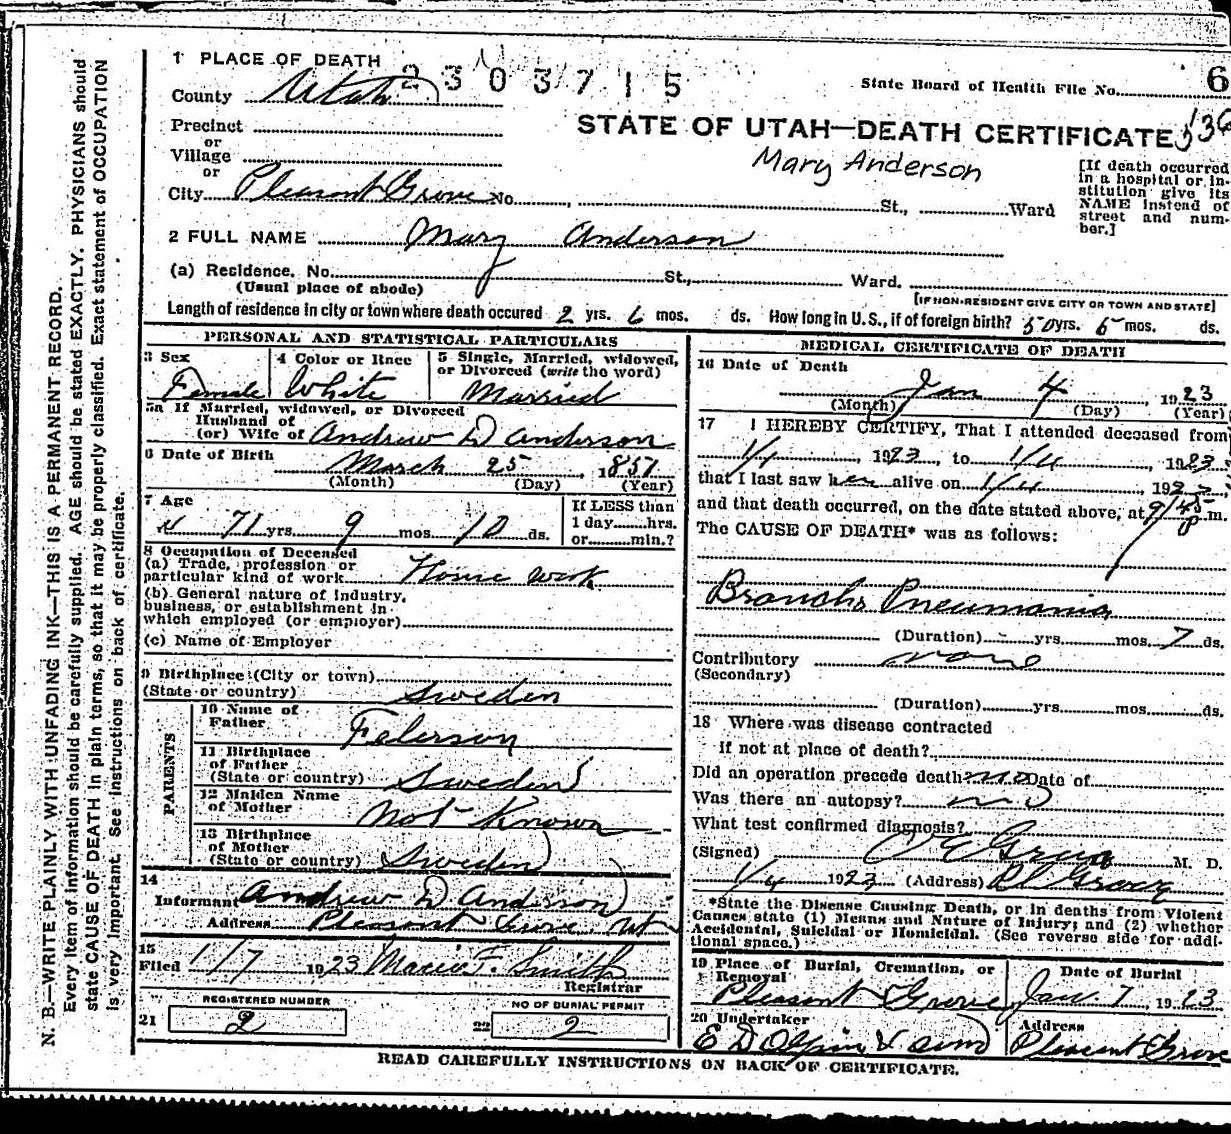 1 PLACE OF DEATH
2303715
State Board of Health File No. 6
County Utah
STATE OF UTAH—DEATH CERTIFICATE
Precinct
or
Village
Mary Anderson
or
City Pleasant Grove No. , St., Ward
[If death occurred in a hospital or in-
stitution give its
NAME instead of
street and num-
ber.]
2 FULL NAME Mary Anderson
(a) Residence. No. St., Ward.
(Usual place of abode)
[IF NON-RESIDENT GIVE CITY OR TOWN AND STATE]
Length of residence in city or town where death occured 2 yrs. 6 mos. ds. How long in U.S., if of foreign birth? 50 yrs. 6 mos. ds.
PERSONAL AND STATISTICAL PARTICULARS
3 Sex
Female
4 Color or Race
White
5 Single, Married, widowed,
or Divorced (write the word)
Married
5a If Married, widowed, or Divorced
Husband of
(or) Wife of Andrew D Anderson
6 Date of Birth
March 25, 1851
(Month) (Day) (Year)
7 Age
71 yrs. 9 mos. 10 ds.
If LESS than
1 day......hrs.
or......min.?
8 Occupation of Deceased
(a) Trade, profession or
particular kind of work House work
(b) General nature of industry,
business, or establishment in
which employed (or employer)
(c) Name of Employer
9 Birthplace (City or town)
(State or country) Sweden
PARENTS
10 Name of
Father
11 Birthplace
of Father
(State or country) Sweden
12 Maiden Name
of Mother Not Known
13 Birthplace
of Mother
(State or country) Sweden
14
Informant Andrew D Anderson
Address Pleasant Grove Ut
15
Filed 1/7 1923 F. Smith
Registrar
REGISTERED NUMBER
21 2
NO OF BURIAL PERMIT
22 2
MEDICAL CERTIFICATE OF DEATH
16 Date of Death
Jan 4, 1923
(Month) (Day) (Year)
17 I HEREBY CERTIFY, That I attended deceased from
1/4, 1923, to 1/4, 1923
that I last saw her alive on 1/4, 192
and that death occurred, on the date stated above, at 9/45 P m.
The CAUSE OF DEATH* was as follows:
Broncho Pneumonia
(Duration) yrs. mos. 7 ds.
Contributory none
(Secondary)
(Duration) yrs. mos. ds.
18 Where was disease contracted
if not at place of death?
Did an operation precede death? no Date of
Was there an autopsy? no
What test confirmed diagnosis?
(Signed) M. D.
1/4 1923 (Address) Pl Grove
*State the Disease Causing Death, or in deaths from Violent
Causes state (1) Means and Nature of Injury; and (2) whether
Accidental, Suicidal or Homicidal. (See reverse side for addi-
tional space.)
19 Place of Burial, Cremation, or
Removal
Pleasant Grove
Date of Burial
Jan 7 1923
20 Undertaker
E D Olpin & sons
Address
Pleasant Grove
READ CAREFULLY INSTRUCTIONS ON BACK OF CERTIFICATE.
N. B.—WRITE PLAINLY WITH UNFADING INK—THIS IS A PERMANENT RECORD.
Every item of information should be carefully supplied. AGE should be stated EXACTLY. PHYSICIANS should
state CAUSE OF DEATH in plain terms, so that it may be properly classified. Exact statement of OCCUPATION
is very important. See instructions on back of certificate.